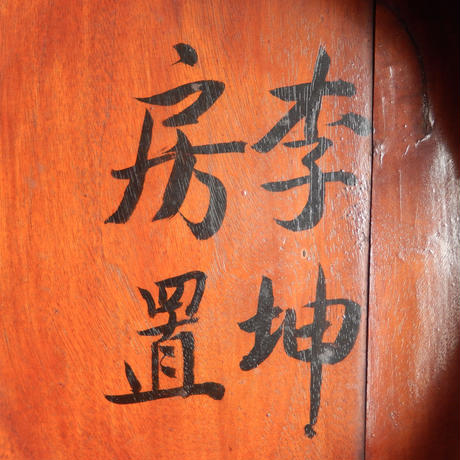 李坤
房置